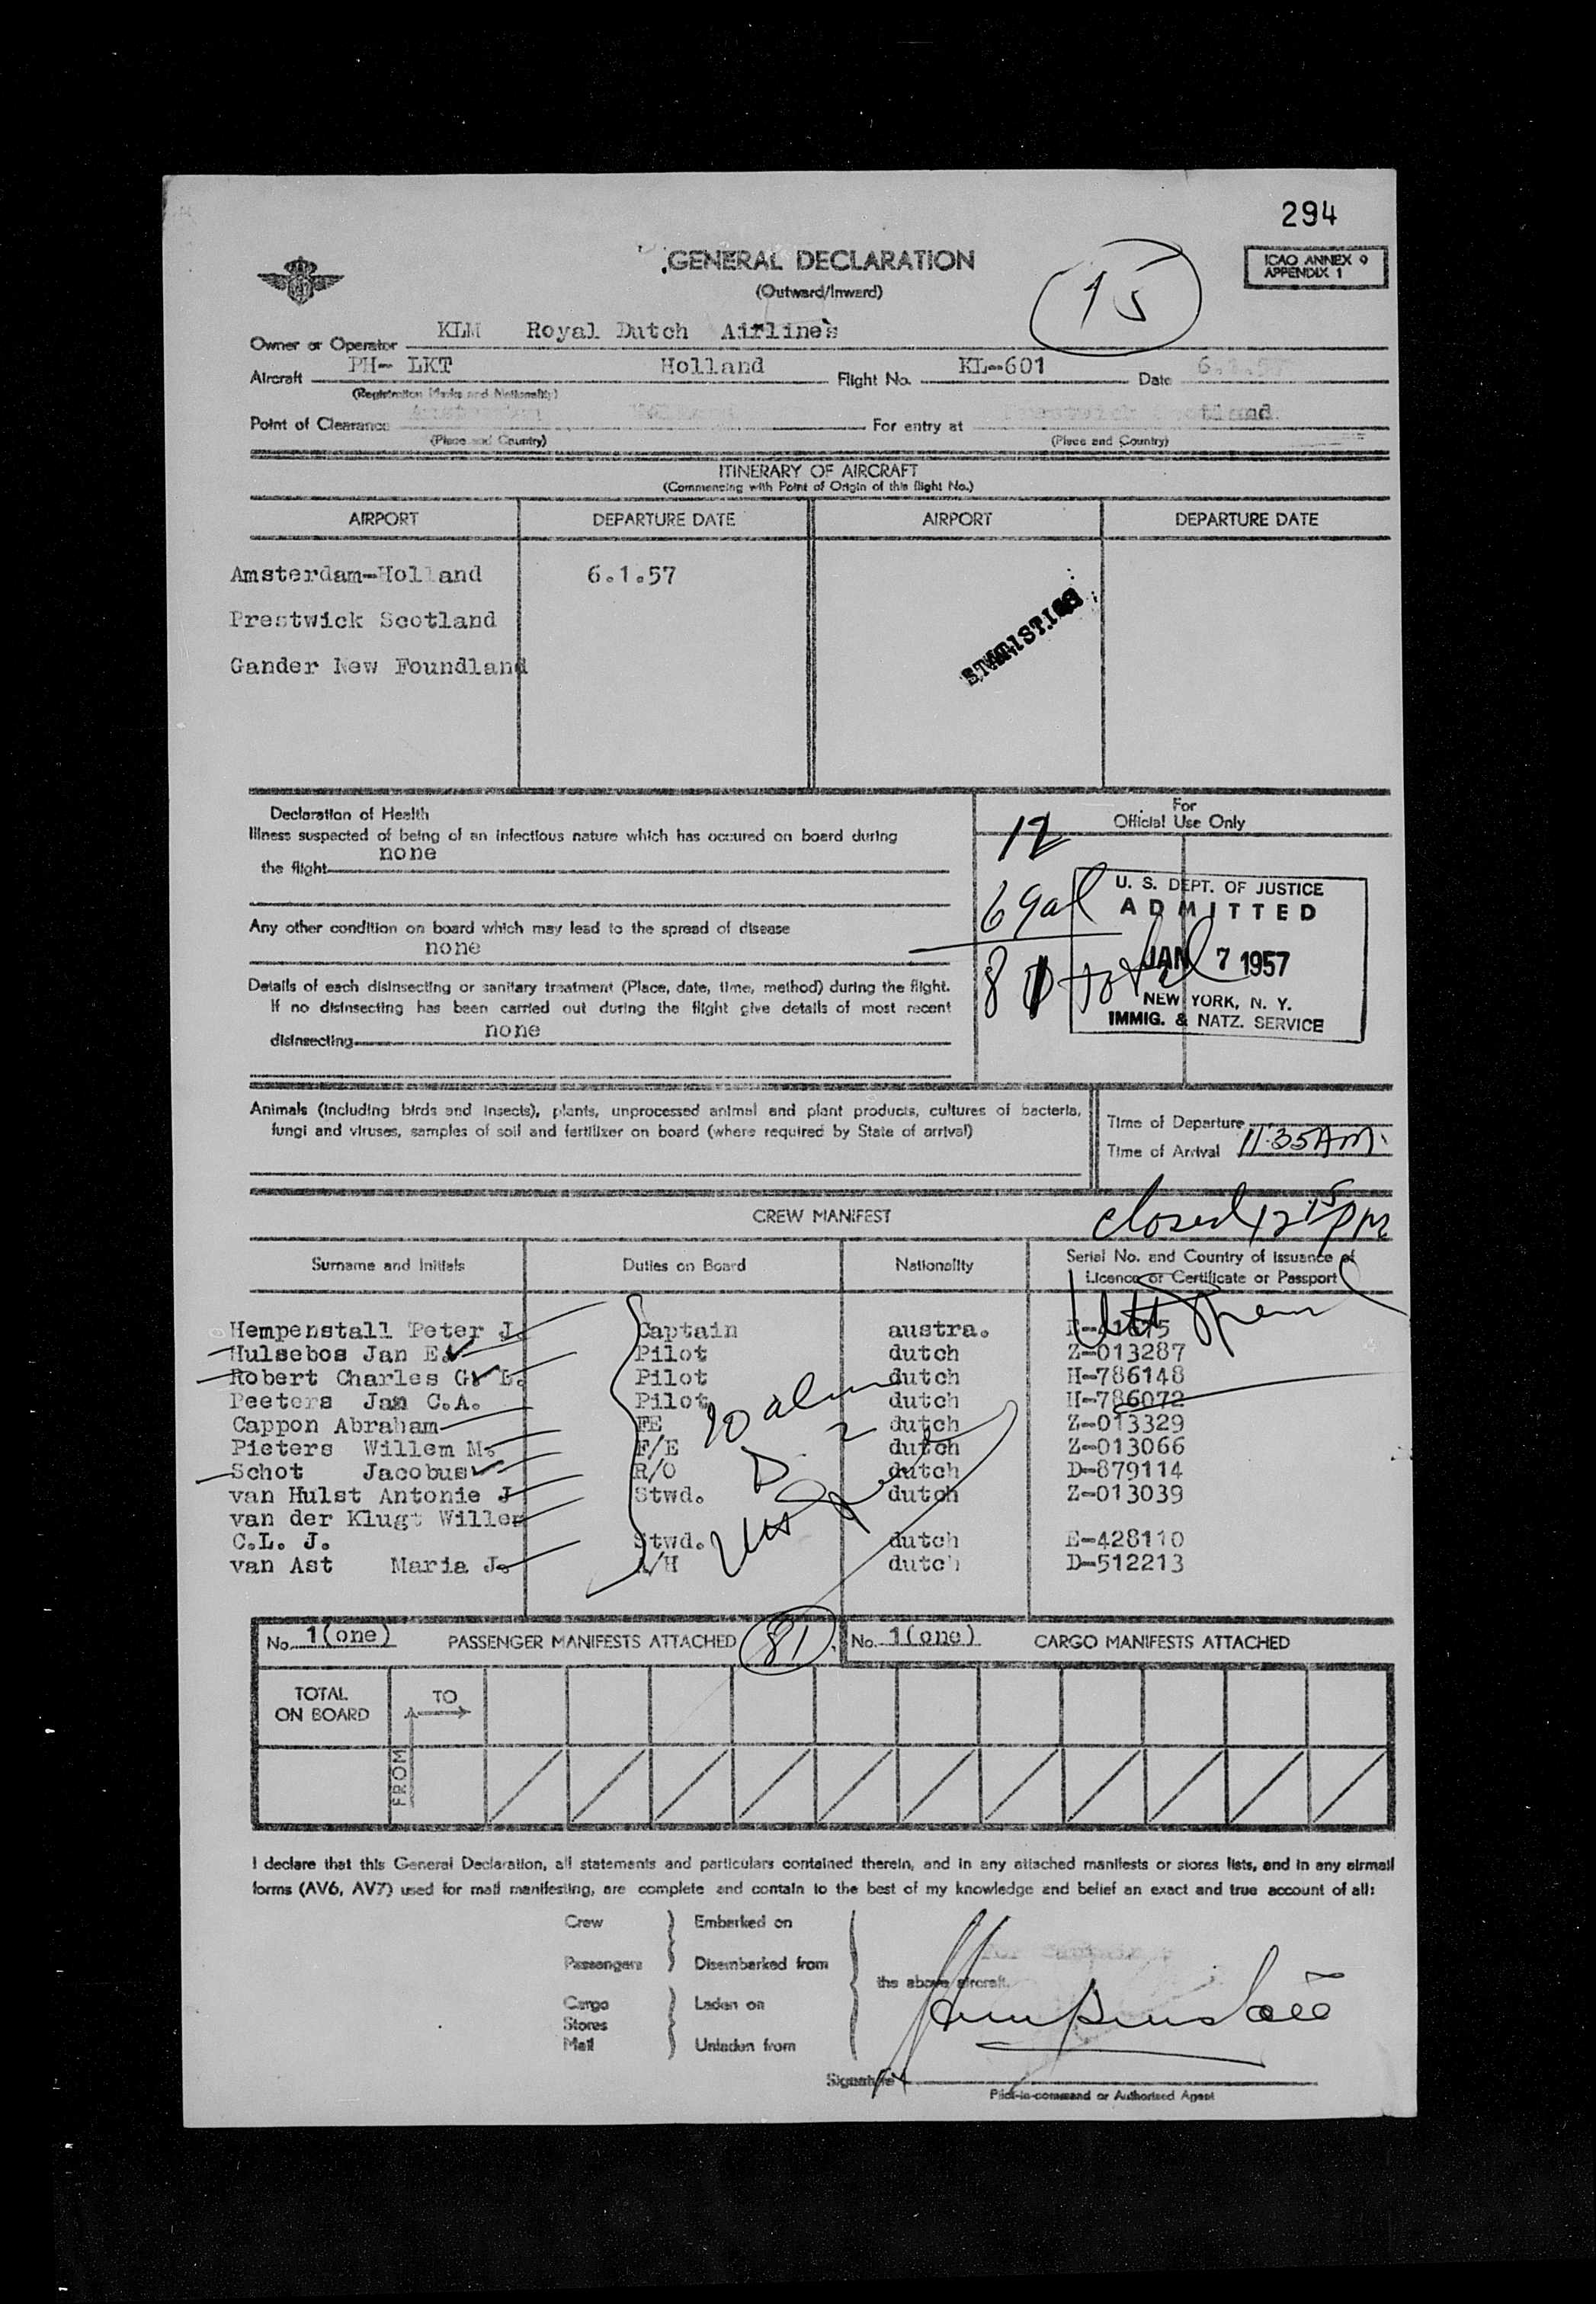 294
GENERAL DECLARATION
(Outward/Inward)
15
ICAO ANNEX 9
APPENDIX 1
Owner or Operator KLM Royal Dutch Airlines
Aircraft PH- LKT Holland Flight No. KL-601 Date 6.1.57
(Registration Marks and Nationality)
Point of Clearance Amsterdam Holland For entry at Prestwick Scotland
(Place and Country) (Place and Country)
ITINERARY OF AIRCRAFT
(Commencing with Point of Origin of this flight No.)
AIRPORT DEPARTURE DATE AIRPORT DEPARTURE DATE
Amsterdam-Holland 6.1.57
Prestwick Scotland
Gander New Foundland
STATISTICS
Declaration of Health
Illness suspected of being of an infectious nature which has occured on board during
the flight none
Any other condition on board which may lead to the spread of disease
none
Details of each disinsecting or sanitary treatment (Place, date, time, method) during the flight.
If no disinsecting has been carried out during the flight give details of most recent
disinsecting none
For
Official Use Only
12
69 al
81 total
U. S. DEPT. OF JUSTICE
ADMITTED
JAN 7 1957
NEW YORK, N. Y.
IMMIG. & NATZ. SERVICE
Animals (including birds and insects), plants, unprocessed animal and plant products, cultures of bacteria,
fungi and viruses, samples of soil and fertilizer on board (where required by State of arrival)
Time of Departure
Time of Arrival 11:35 AM.
closed 12 15 PM
CREW MANIFEST
Surname and Initials Duties on Board Nationality Serial No. and Country of Issuance of
Licence or Certificate or Passport
Hempenstall Peter J. Captain austra.
Hulsebos Jan E. Pilot dutch Z-013287
Robert Charles G. L. Pilot dutch H-786148
Peeters Jan C.A. Pilot dutch H-786072
Cappon Abraham FE dutch Z-013329
Pieters Willem M. F/E dutch Z-013066
Schot Jacobus R/O dutch D-879114
van Hulst Antonie J Stwd. dutch Z-013039
van der Klugt Willem
C.L. J. Stwd. dutch E-428110
van Ast Maria J. A/H dutch D-512213
10 alm
D 2
No. 1(one) PASSENGER MANIFESTS ATTACHED 81 No. 1(one) CARGO MANIFESTS ATTACHED
TOTAL
ON BOARD
TO
FROM
I declare that this General Declaration, all statements and particulars contained therein, and in any attached manifests or stores lists, and in any airmail
forms (AV6, AV7) used for mail manifesting, are complete and contain to the best of my knowledge and belief an exact and true account of all:
Crew Embarked on
Passengers Disembarked from
the above aircraft.
Cargo Laden on
Stores
Mail Unladen from
Signature
Pilot-in-command or Authorised Agent